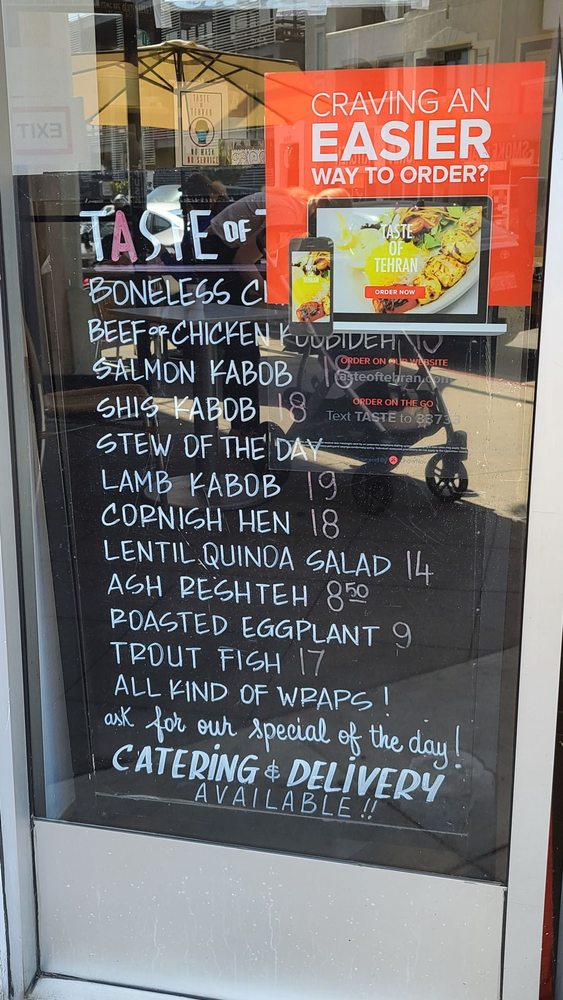 EXIT
TASTE
OF
TEHRAN
NO MASK
NO SERVICE
CRAVING AN
EASIER
WAY TO ORDER?
TASTE
OF
TEHRAN
ORDER NOW
TASTE OF
BONELESS
BEEF OR CHICKEN KOOBIDEH
ORDER ON OUR WEBSITE
tasteoftehran.com
ORDER ON THE GO
Text TASTE to 33733
SALMON KABOB 18
SHIS KABOB 18
STEW OF THE DAY
LAMB KABOB 19
CORNISH HEN 18
LENTIL QUINOA SALAD 14
ASH RESHTEH 8 50
ROASTED EGGPLANT 9
TROUT FISH 17
ALL KIND OF WRAPS!
ask for our special of the day!
CATERING & DELIVERY
AVAILABLE!!